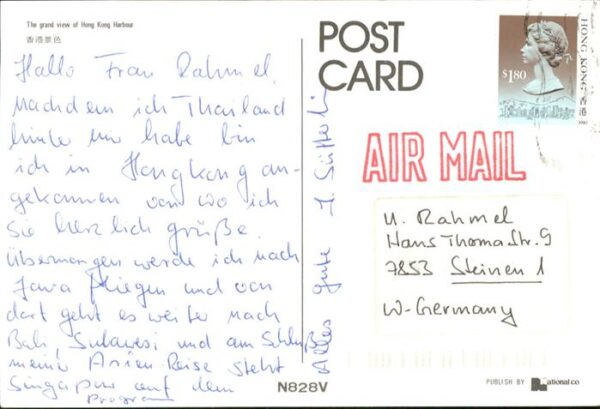 The grand view of Hong Kong Harbour
香港景色
Hallo Frau Rahmel,
nachdem ich Thailand
hinter mir habe bin
ich in Hongkong an-
gekommen von wo ich
Sie herzlich grüße.
Übermorgen werde ich nach
Java fliegen und von
dort geht es weiter nach
Bali, Sulawesi und am Schluß
meiner Asien-Reise steht
Singapur auf dem
Program
Alles Gute
POST
CARD
AIR MAIL
$1.80
HONG KONG 香港
U. Rahmel
Hans Thoma Str. 9
7853 Steinen 1
W-Germany
N828V
PUBLISH BY National co